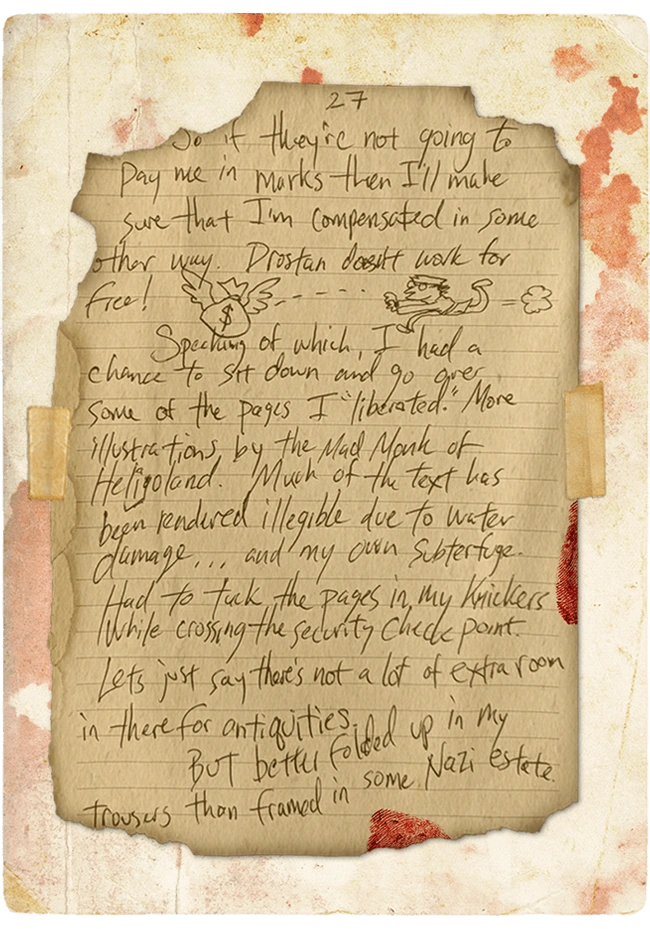 27
So if they're not going to
pay me in marks then I'll make
sure that I'm compensated in some
other way. Drostan doesn't work for
free!
$
Speaking of which, I had a
chance to sit down and go over
some of the pages I "liberated." More
illustrations, by the Mad Monk of
Heligoland. Much of the text has
been rendered illegible due to water
damage... and my own subterfuge.
Had to tuck the pages in my knickers
while crossing the security checkpoint.
Lets just say there's not a lot of extra room
in there for antiquities.
But better folded up in my
trousers than framed in some Nazi estate.